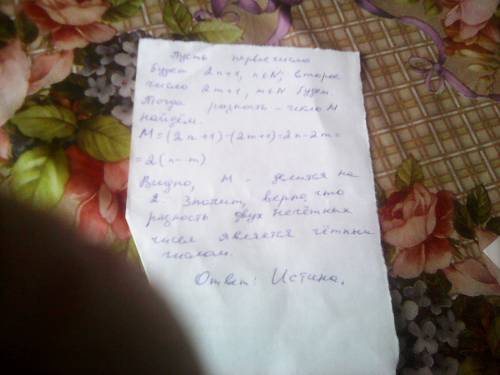 Пусть первое число
будет 2n+1, n∈N, второе
число 2m+1, m∈N будет.
Тогда разность - число M
найдём.
M=(2n+1)-(2m+1)=2n-2m=
=2(n-m)
Видно, M - делится на
2. Значит, верно, что
разность двух нечётных
чисел является чётным
числом.
Ответ: Истина.